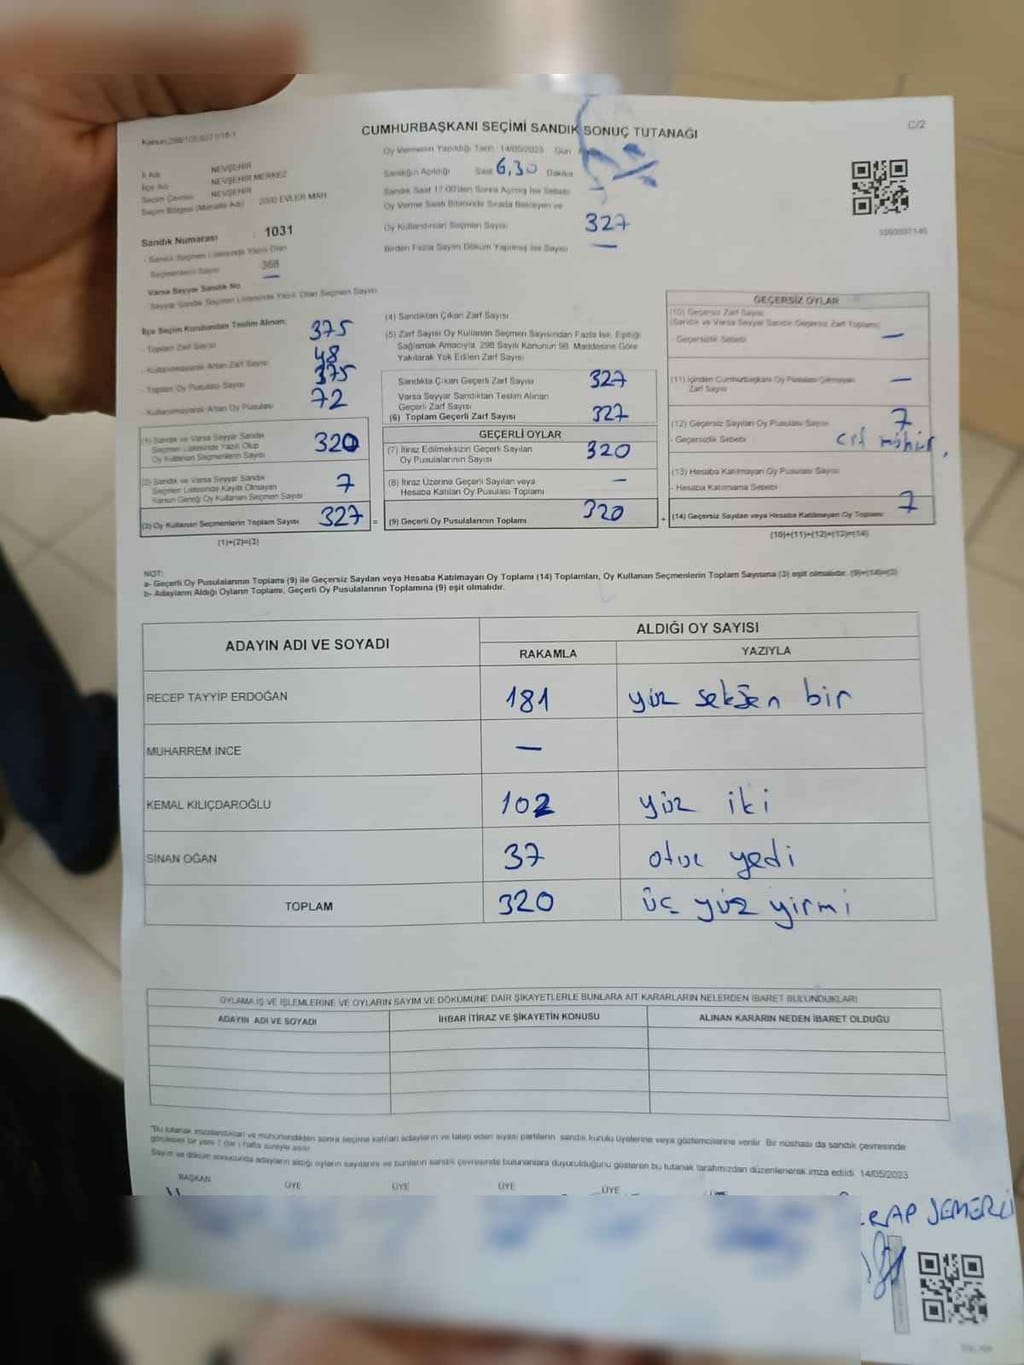 C/2
CUMHURBAŞKANI SEÇİMİ SANDIK SONUÇ TUTANAĞI
Oy Vermenin Yapıldığı Tarih: 14/05/2023 Gün:
İl Adı NEVŞEHİR
İlçe Adı NEVŞEHİR MERKEZ
Seçim Çevresi NEVŞEHİR
Seçim Bölgesi (Mahalle Adı) 2000 EVLER MAH
Sandık Numarası : 1031
- Sandık Seçmen Listesinde Yazılı Olan
Seçmenlerin Sayısı 368
Varsa Seyyar Sandık No —
- Seyyar Sandık Seçmen Listesinde Yazılı Olan Seçmen Sayısı
Sandığın Açıldığı Saat 6,30 Dakika
Sandık Saat 17:00'den Sonra Açılmış İse Sebebi —
Oy Verme Saati Bitiminde Sırada Bekleyen ve
Oy Kullandırılan Seçmen Sayısı 327
Birden Fazla Sayım Döküm Yapılmış İse Sayısı —
İlçe Seçim Kurulundan Teslim Alınan;
- Toplam Zarf Sayısı 375
- Kullanılmayarak Artan Zarf Sayısı 48
- Toplam Oy Pusulası Sayısı 375
- Kullanılmayarak Artan Oy Pusulası 72
(1) Sandık ve Varsa Seyyar Sandık
Seçmen Listesinde Yazılı Olup
Oy Kullanan Seçmenlerin Sayısı 320
(2) Sandık ve Varsa Seyyar Sandık
Seçmen Listesinde Kayıtlı Olmayan
Kanun Gereği Oy Kullanan Seçmen Sayısı 7
(3) Oy Kullanan Seçmenlerin Toplam Sayısı 327 =
(1)+(2)=(3)
(4) Sandıktan Çıkan Zarf Sayısı
(5) Zarf Sayısı Oy Kullanan Seçmen Sayısından Fazla İse, Eşitliği
Sağlamak Amacıyla, 298 Sayılı Kanunun 98. Maddesine Göre
Yakılarak Yok Edilen Zarf Sayısı
Sandıkta Çıkan Geçerli Zarf Sayısı 327
Varsa Seyyar Sandıktan Teslim Alınan
Geçerli Zarf Sayısı
(6) Toplam Geçerli Zarf Sayısı 327
GEÇERLİ OYLAR
(7) İtiraz Edilmeksizin Geçerli Sayılan
Oy Pusulalarının Sayısı 320
(8) İtiraz Üzerine Geçerli Sayılan veya
Hesaba Katılan Oy Pusulası Toplamı —
(9) Geçerli Oy Pusulalarının Toplamı 320 +
GEÇERSİZ OYLAR
(10) Geçersiz Zarf Sayısı
(Sandık ve Varsa Seyyar Sandık Geçersiz Zarf Toplamı)
- Geçersizlik Sebebi —
(11) İçinden Cumhurbaşkanı Oy Pusulası Çıkmayan
Zarf Sayısı —
(12) Geçersiz Sayılan Oy Pusulası Sayısı 7
- Geçersizlik Sebebi çift mühür,
(13) Hesaba Katılmayan Oy Pusulası Sayısı
- Hesaba Katılmama Sebebi
(14) Geçersiz Sayılan veya Hesaba Katılmayan Oy Toplamı 7
(10)+(11)+(12)+(13)=(14)
NOT:
a- Geçerli Oy Pusulalarının Toplamı (9) ile Geçersiz Sayılan veya Hesaba Katılmayan Oy Toplamı (14) Toplamları, Oy Kullanan Seçmenlerin Toplam Sayısına (3) eşit olmalıdır. (9)+(14)=(3)
b- Adayların Aldığı Oyların Toplamı, Geçerli Oy Pusulalarının Toplamına (9) eşit olmalıdır.
ADAYIN ADI VE SOYADI ALDIĞI OY SAYISI
RAKAMLA YAZIYLA
RECEP TAYYİP ERDOĞAN 181 yüz seksen bir
MUHARREM İNCE —
KEMAL KILIÇDAROĞLU 102 yüz iki
SİNAN OĞAN 37 otuz yedi
TOPLAM 320 üç yüz yirmi
OYLAMA İŞ VE İŞLEMLERİNE VE OYLARIN SAYIM VE DÖKÜMÜNE DAİR ŞİKAYETLERLE BUNLARA AİT KARARLARIN NELERDEN İBARET BULUNDUKLARI
ADAYIN ADI VE SOYADI İHBAR İTİRAZ VE ŞİKAYETİN KONUSU ALINAN KARARIN NEDEN İBARET OLDUĞU
"Bu tutanak imzalandıktan ve mühürlendikten sonra seçime katılan adayların ve talep eden siyasi partilerin sandık kurulu üyelerine veya gözlemcilerine verilir. Bir nüshası da sandık çevresinde
görülecek bir yere 1 (bir) hafta süreyle asılır.
Sayım ve döküm sonucunda adayların aldığı oyların sayılarını ve bunların sandık çevresinde bulunanlara duyurulduğunu gösteren bu tutanak tarafımızdan düzenlenerek imza edildi. 14/05/2023
BAŞKAN ÜYE ÜYE ÜYE ÜYE